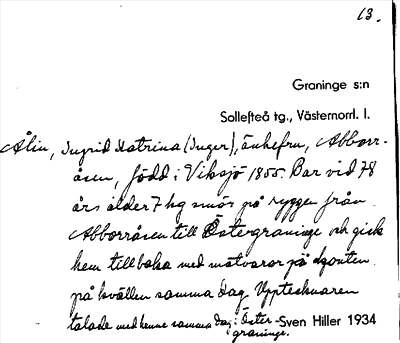 13.
Graninge s:n
Sollefteå tg., Västernorrl. l.
Ålin, Ingrid Katrina (Inger), änkefru, Abborr-
åsen, född i Viksjö 1855. Bar vid 78
års ålder 7 kg smör på ryggen från
Abborråsen till Östergraninge och gick
hem tillbaka med matvaror på konten
på kvällen samma dag. Upptecknaren
talade med henne samma dag i Öster-
graninge.
Sven Hiller 1934